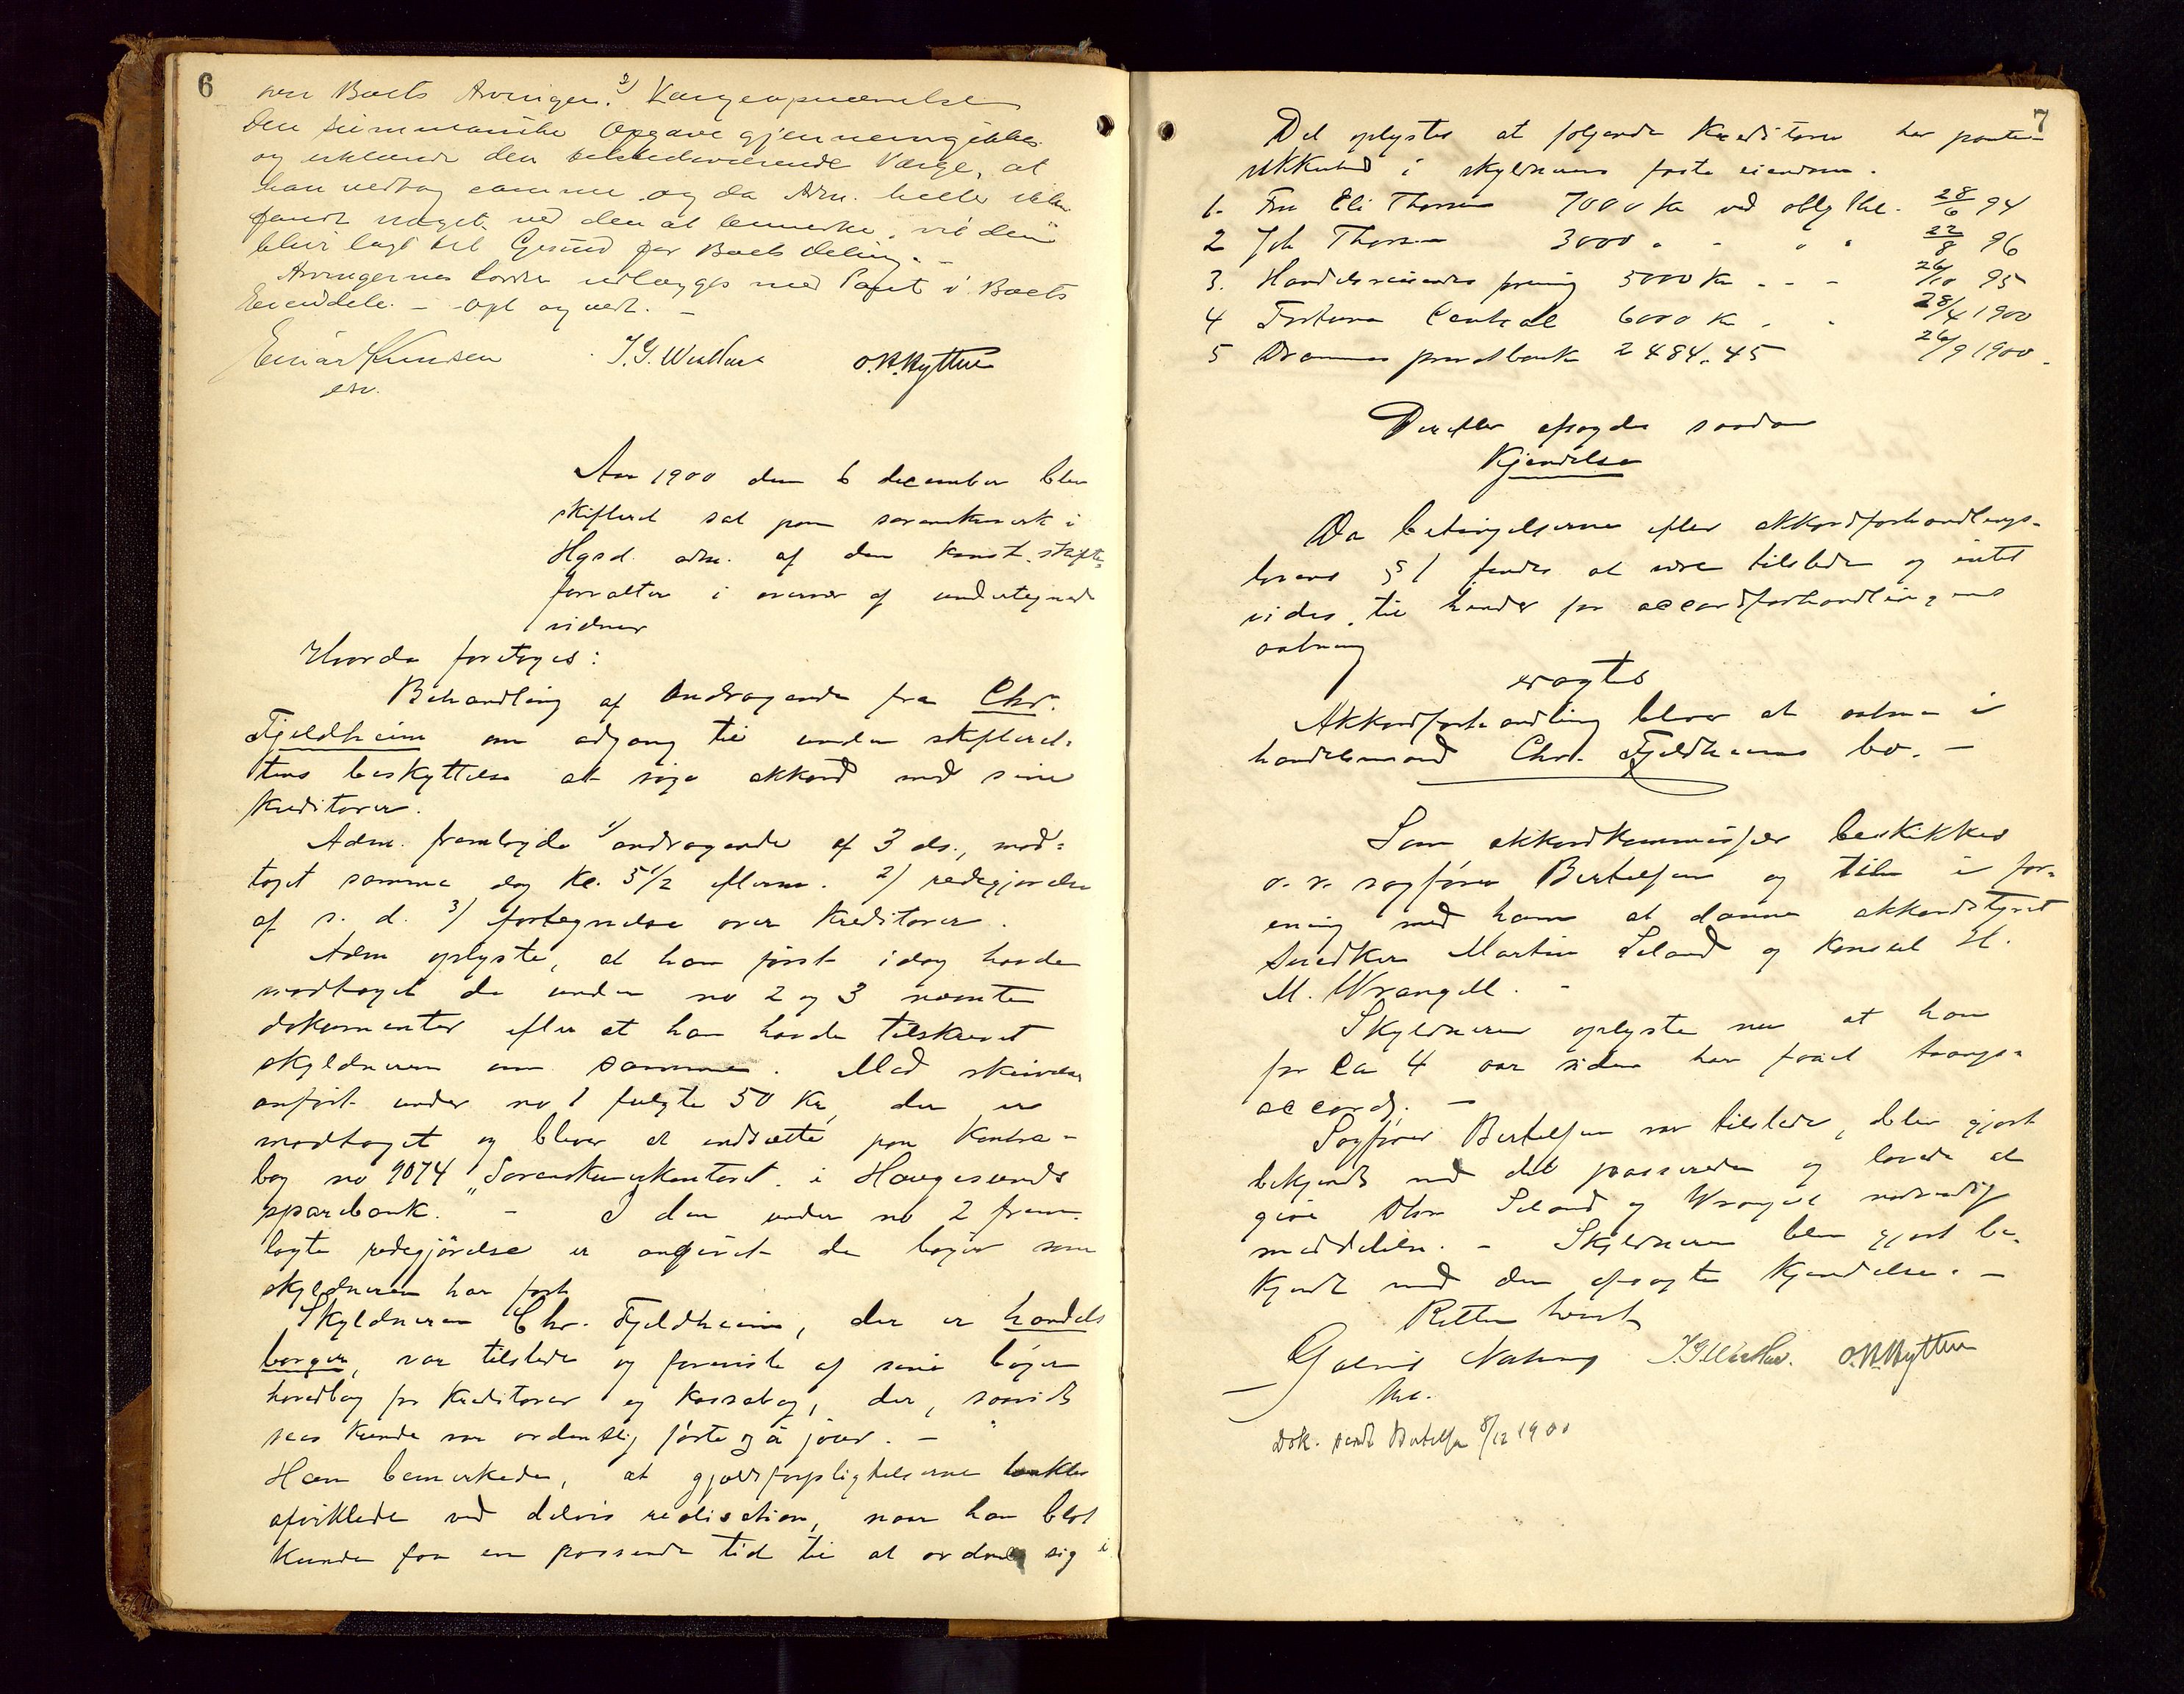 6
over Boets Arvinger. 2) Værgeopnævnelse
Den summariske Opgave gjennemgikkes
og erklærede den tilstedeværende Værge, at
han vedtog samme og da Adm. heller ikke
fandt noget ved den at bemerke, vil den
blive lagt til Grund for Boets deling. -
Arvingernes Lodder udlægges med Pant i Boets
Eiendele. - Opl og vedt. -
Einar Knudsen J. G. Wathne O. N. Nyttun
Aar 1900 den 6 december blev
skifteret sat paa sorenskriverk i
Hgsd adm. af den konst. skifte-
forvalter i overvær af undertegnede
vidner
Hvorda foretoges:
Behandling af Andragende fra Chr.
Fjeldheim om adgang til under skifteret-
tens beskyttelse at søge akkord med sine
kreditorer.
Adm. fremlagde 1/ andragende af 3 ds., mod-
taget samme dag Kl. 5 1/2 efterm. 2/ redegjørelse
af s. d. 3/ fortegnelse over Kreditorer.
Adm oplyste, at han først idag havde
modtaget de under no 2 og 3 nævnte
dokumenter efter at han havde tilskrevet
skyldneren om samme. Med skrivelse
anført under no 1 fulgte 50 Kr, der er
modtaget og bliver at indsætte paa Kontra-
bog no 9074 "Sorenskriverkontoret" i Haugesunds
sparebank. - I den under no 2 frem-
lagte redegjørelse er angivet de bøger som
skyldneren har ført
Skyldneren Chr. Fjeldheim, der er handels
borger, var tilstede og foreviste af sine bøger
hovedbog for Kreditorer og Kassabog, der, saavidt
sees kunde var ordentlig førte og à jour. -
Han bemerkede, at gjældsforpligtelserne tænktes
afviklede ved delvis realisation, naar han blot
kunde faa en passende tid til at ordne sig i
7
Det oplystes at følgende Kreditorer har pante-
sikkerhed i skyldnerens faste eiendom.
1. Fru Eli Thorsen 7000 Kr ved oblg thl. 28/6 94
2 Joh Thorsen 3000 " - " " 22/8 96
3. Handelsreisendes forening 5000 Kr - - - 26/10 95
4 Fortuna Central 6000 Kr " " 28/4 1900
5 Drammens privatbank 2484.45 26/9 1900.
Derefter afsagdes saadan
Kjendelse
Da betingelserne efter akkordforhandlings-
lovens § 1 findes at være tilstede og intet
vides til hinder for accordforhandlingens
aabning
eragtes
Akkordforhandling bliver at aabne i
handelsmand Chr. Fjeldheims bo. -
Som akkordkommissær beskikkes
o. r. sagfører Bertelsen og til i for-
ening med ham at danne akkordstyret
Snedker Martin Seland og Konsul H.
M. Wrangell. -
Skyldneren oplyste nu at han
for ca 4 aar siden har faaet tvangs-
accord. -
Sagfører Bertelsen var tilstede, blev gjort
bekjendt med det passerede og lovede at
give Dhrr Seland og Wrangell nødvendig
meddelelse. - Skyldneren blev gjort be-
kjendt med den afsagte kjendelse. -
Retten hævet
J. G. Wathne. O. N. Nyttun
Dok. sendt Bertelsen 8/12 1900